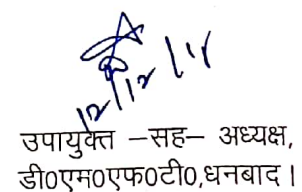 12/12/14
उपायुक्त –सह– अध्यक्ष,
डी0एम0एफ0टी0,धनबाद।